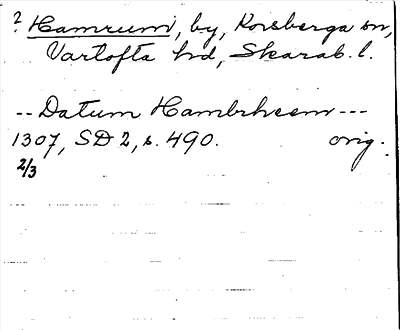 ? Hamrum, by, Korsberga sn,
Vartofta hd, Skarab. l.
-- Datum Hambrheem ---
1307, SD 2, s. 490. orig.
2/3